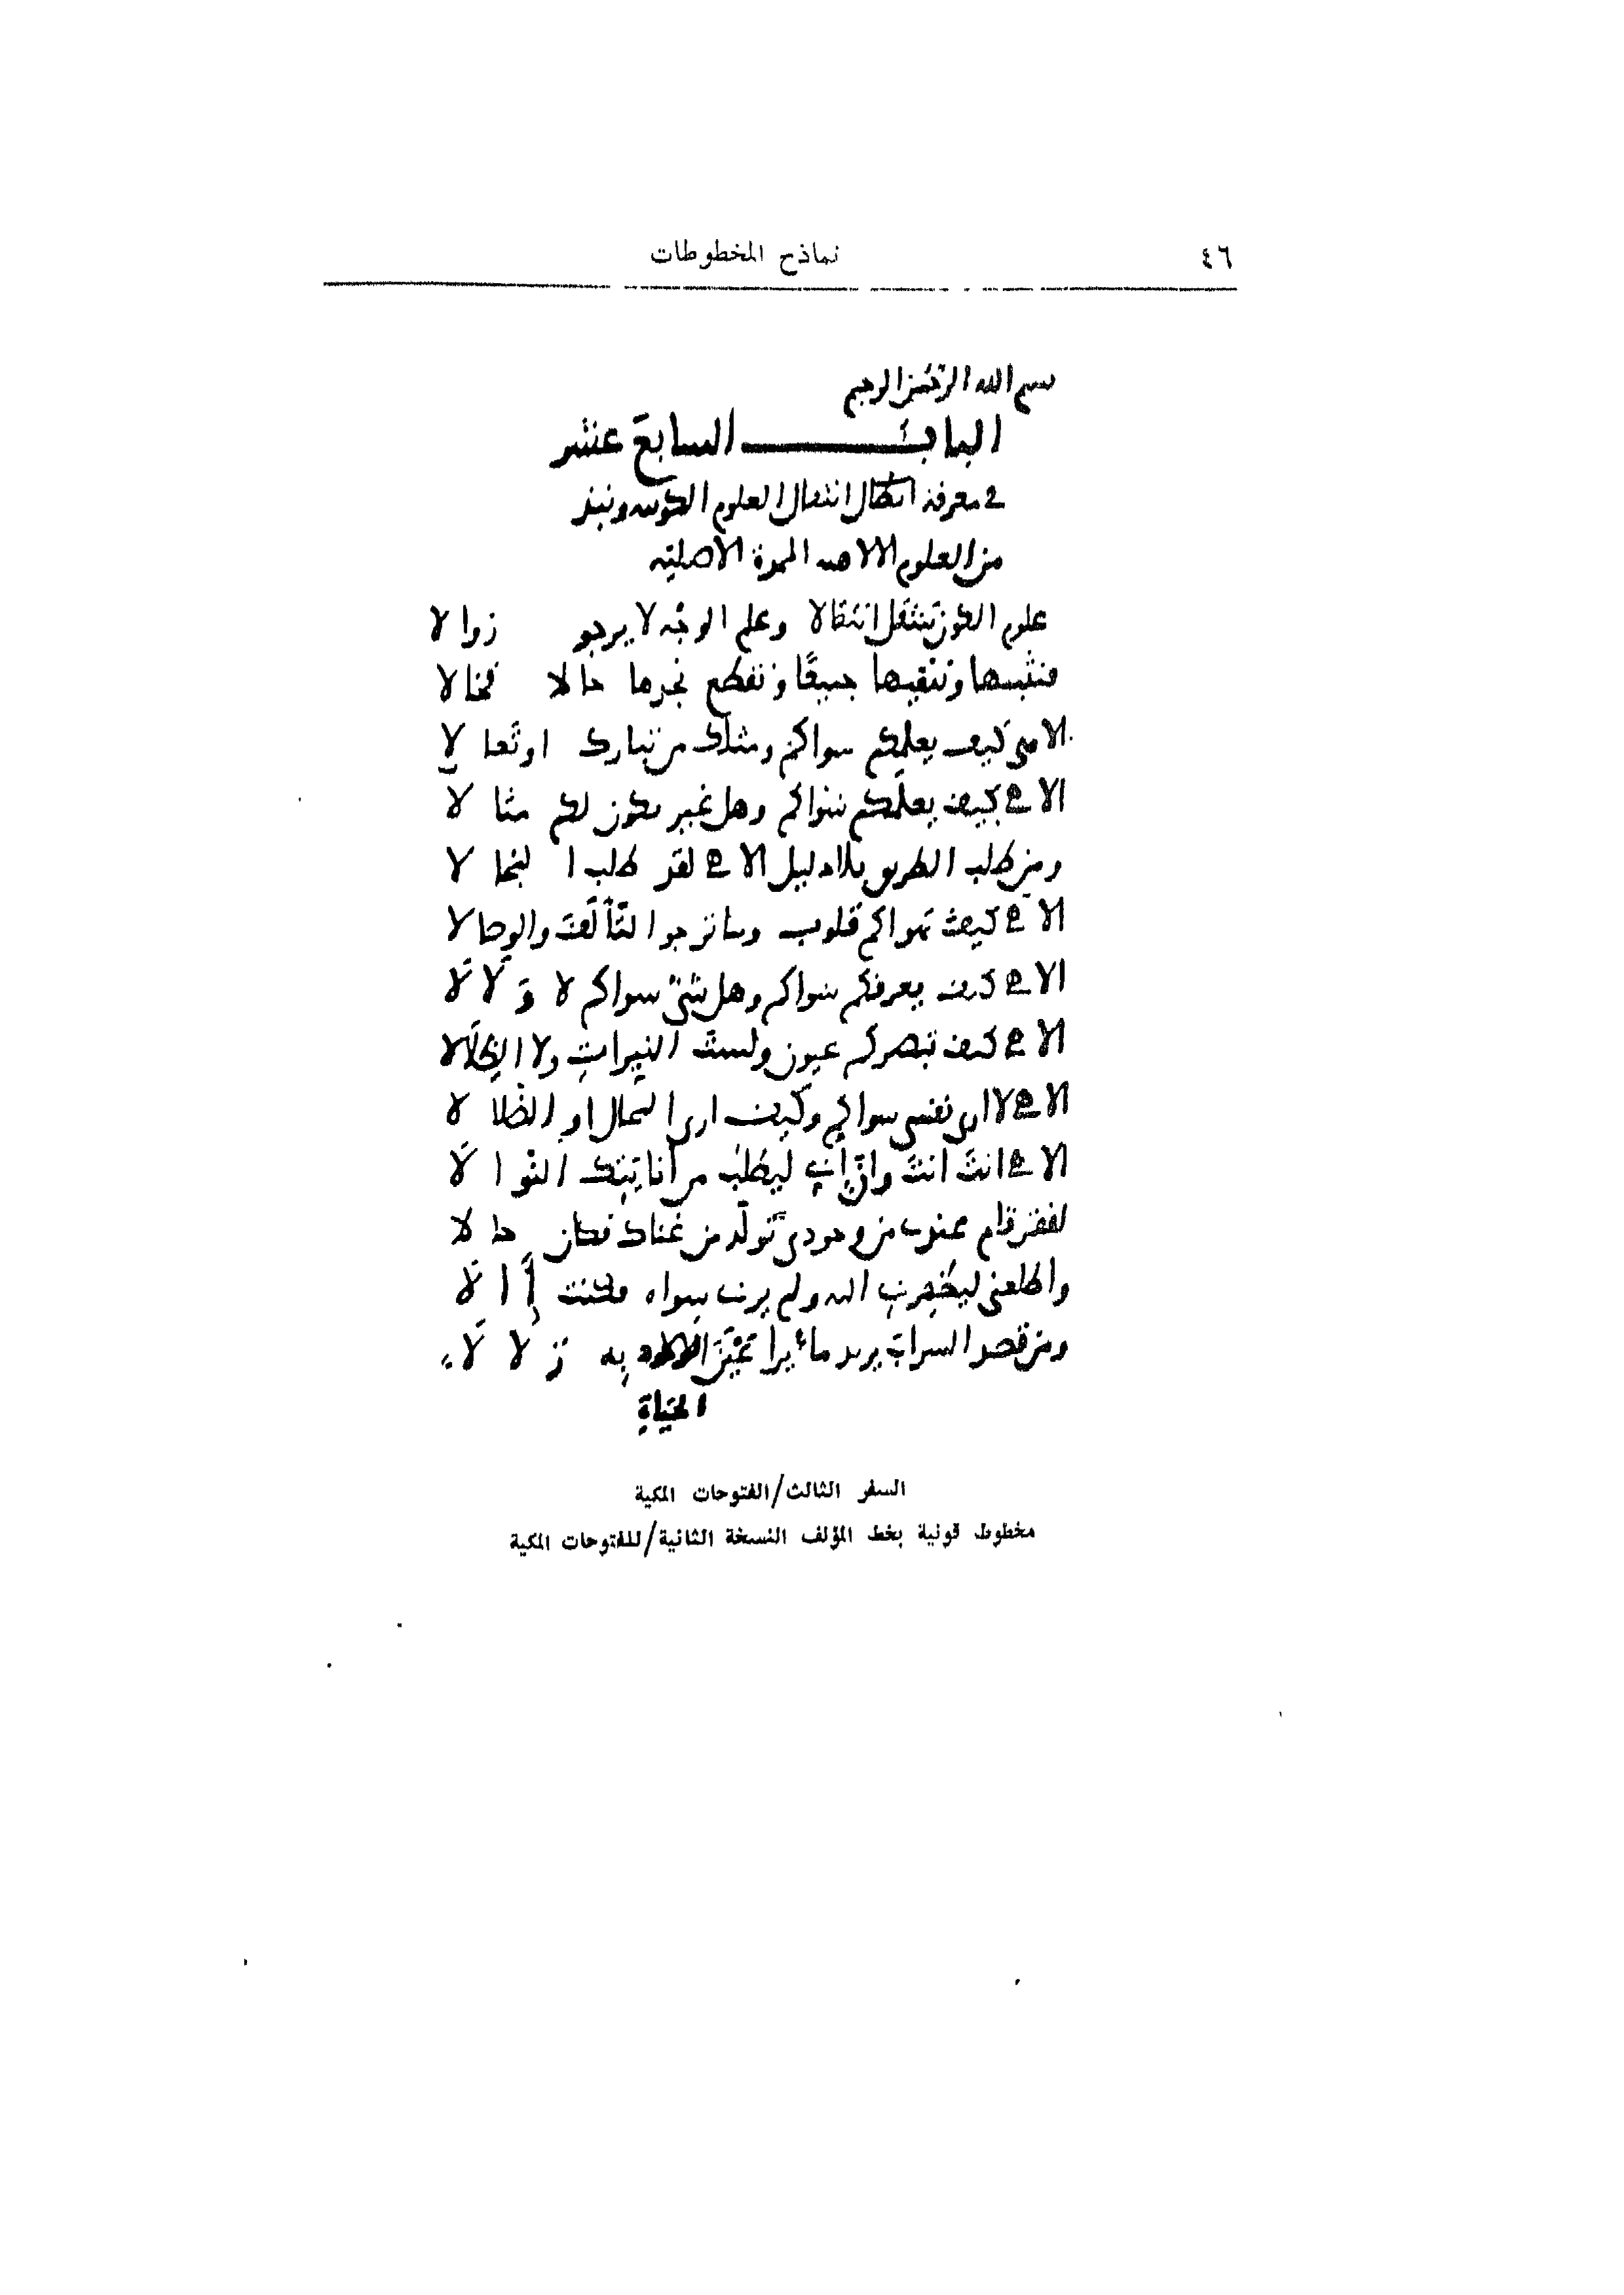 ٤٦ نماذج المخطوطات
بسم الله الرحمن الرحيم
الباب السابع عشر
في معرفة انتقال العلوم الكونيه ونبذ
من العلوم الالاهيه الممدة الاصليه
علوم الكون تنتقل انتقالا وعلم الوجه لا يرجو زوالا
فنثبتها وننفيها جميعًا ونقطع نجدها حالا فحالا
الاهي كيف يعلمكم سواكم ومثلك من تبارك او تعالا
الاهي كيف يعلمكم سواكم وهل غير يكون لكم مثالا
ومن طلب الطريق بلا دليل الاهي لقد طلب المحالا
الاهي كيف تهواكم قلوب وما ترجوا التألّف والوصالا
الاهي كيف يعرفكم سواكم وهل شيء سواكم لا وَلَا لَا
الاهي كيف تبصركم عيون ولست النيرات ولا الظلالا
الاهي لا ارى نفسي سواكم وكيف ارى المحال او الضلالا
الاهي انتَ انتَ وانّ اني ليطلب من انايتك النوالا
لفقر قام عندي من وجودي تولّد من غناك فكان حالا
واطلعني ليظهرني اليه ولم يرني سواه فكنت أالَا
ومن قصد السراب يريد ماءً يرا عين به زلالَا
الحياة
السفر الثالث/الفتوحات المكية
مخطوط قونية بخط المؤلف النسخة الثانية/للفتوحات المكية